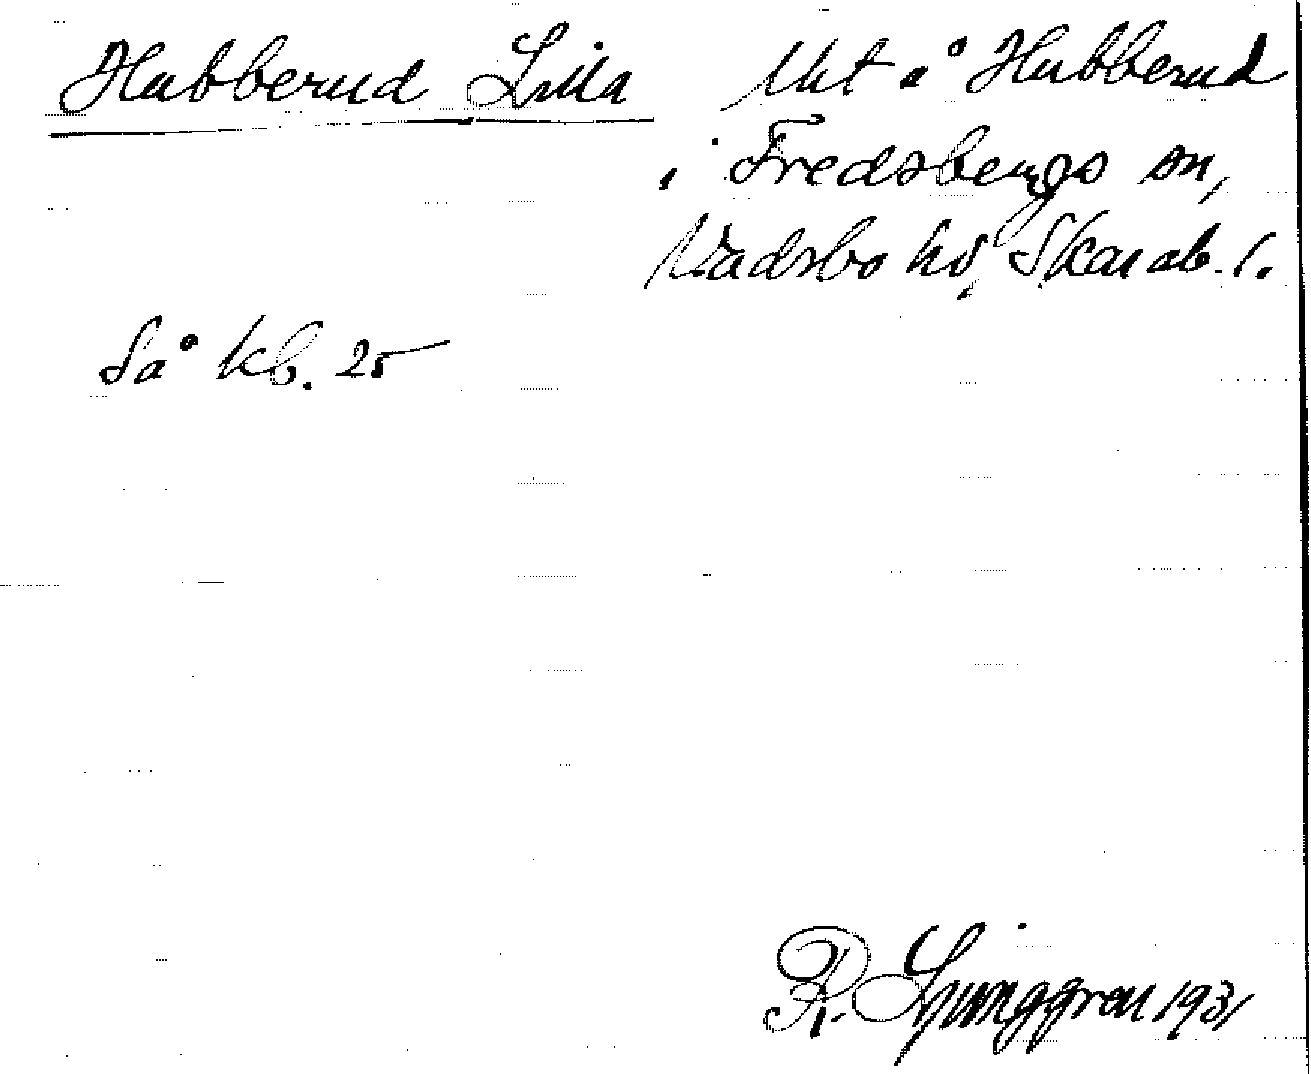 Hubberud Lilla
Ukt å Hubberud
i Fredsbergs sn,
Vadsbo hd, Skarab. l.
Så kb. 25
R. Ljunggren 1931